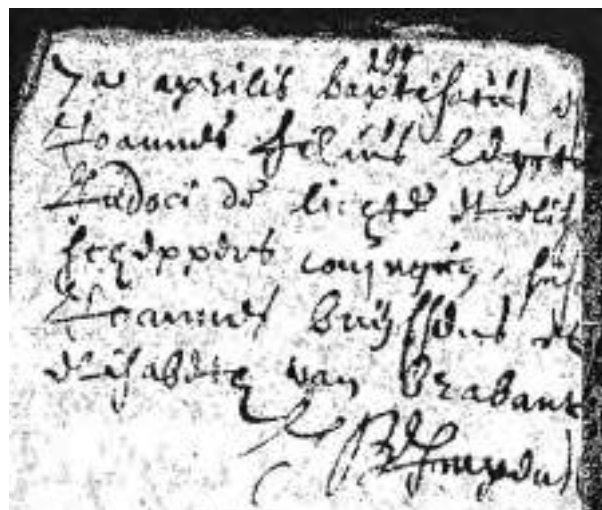 7a aprilis baptisatus e
Joannes filius legit
Judoci de lichte et elis
scheppers conjugu, sus
Joannes buijssens et
elisabeth van brabant